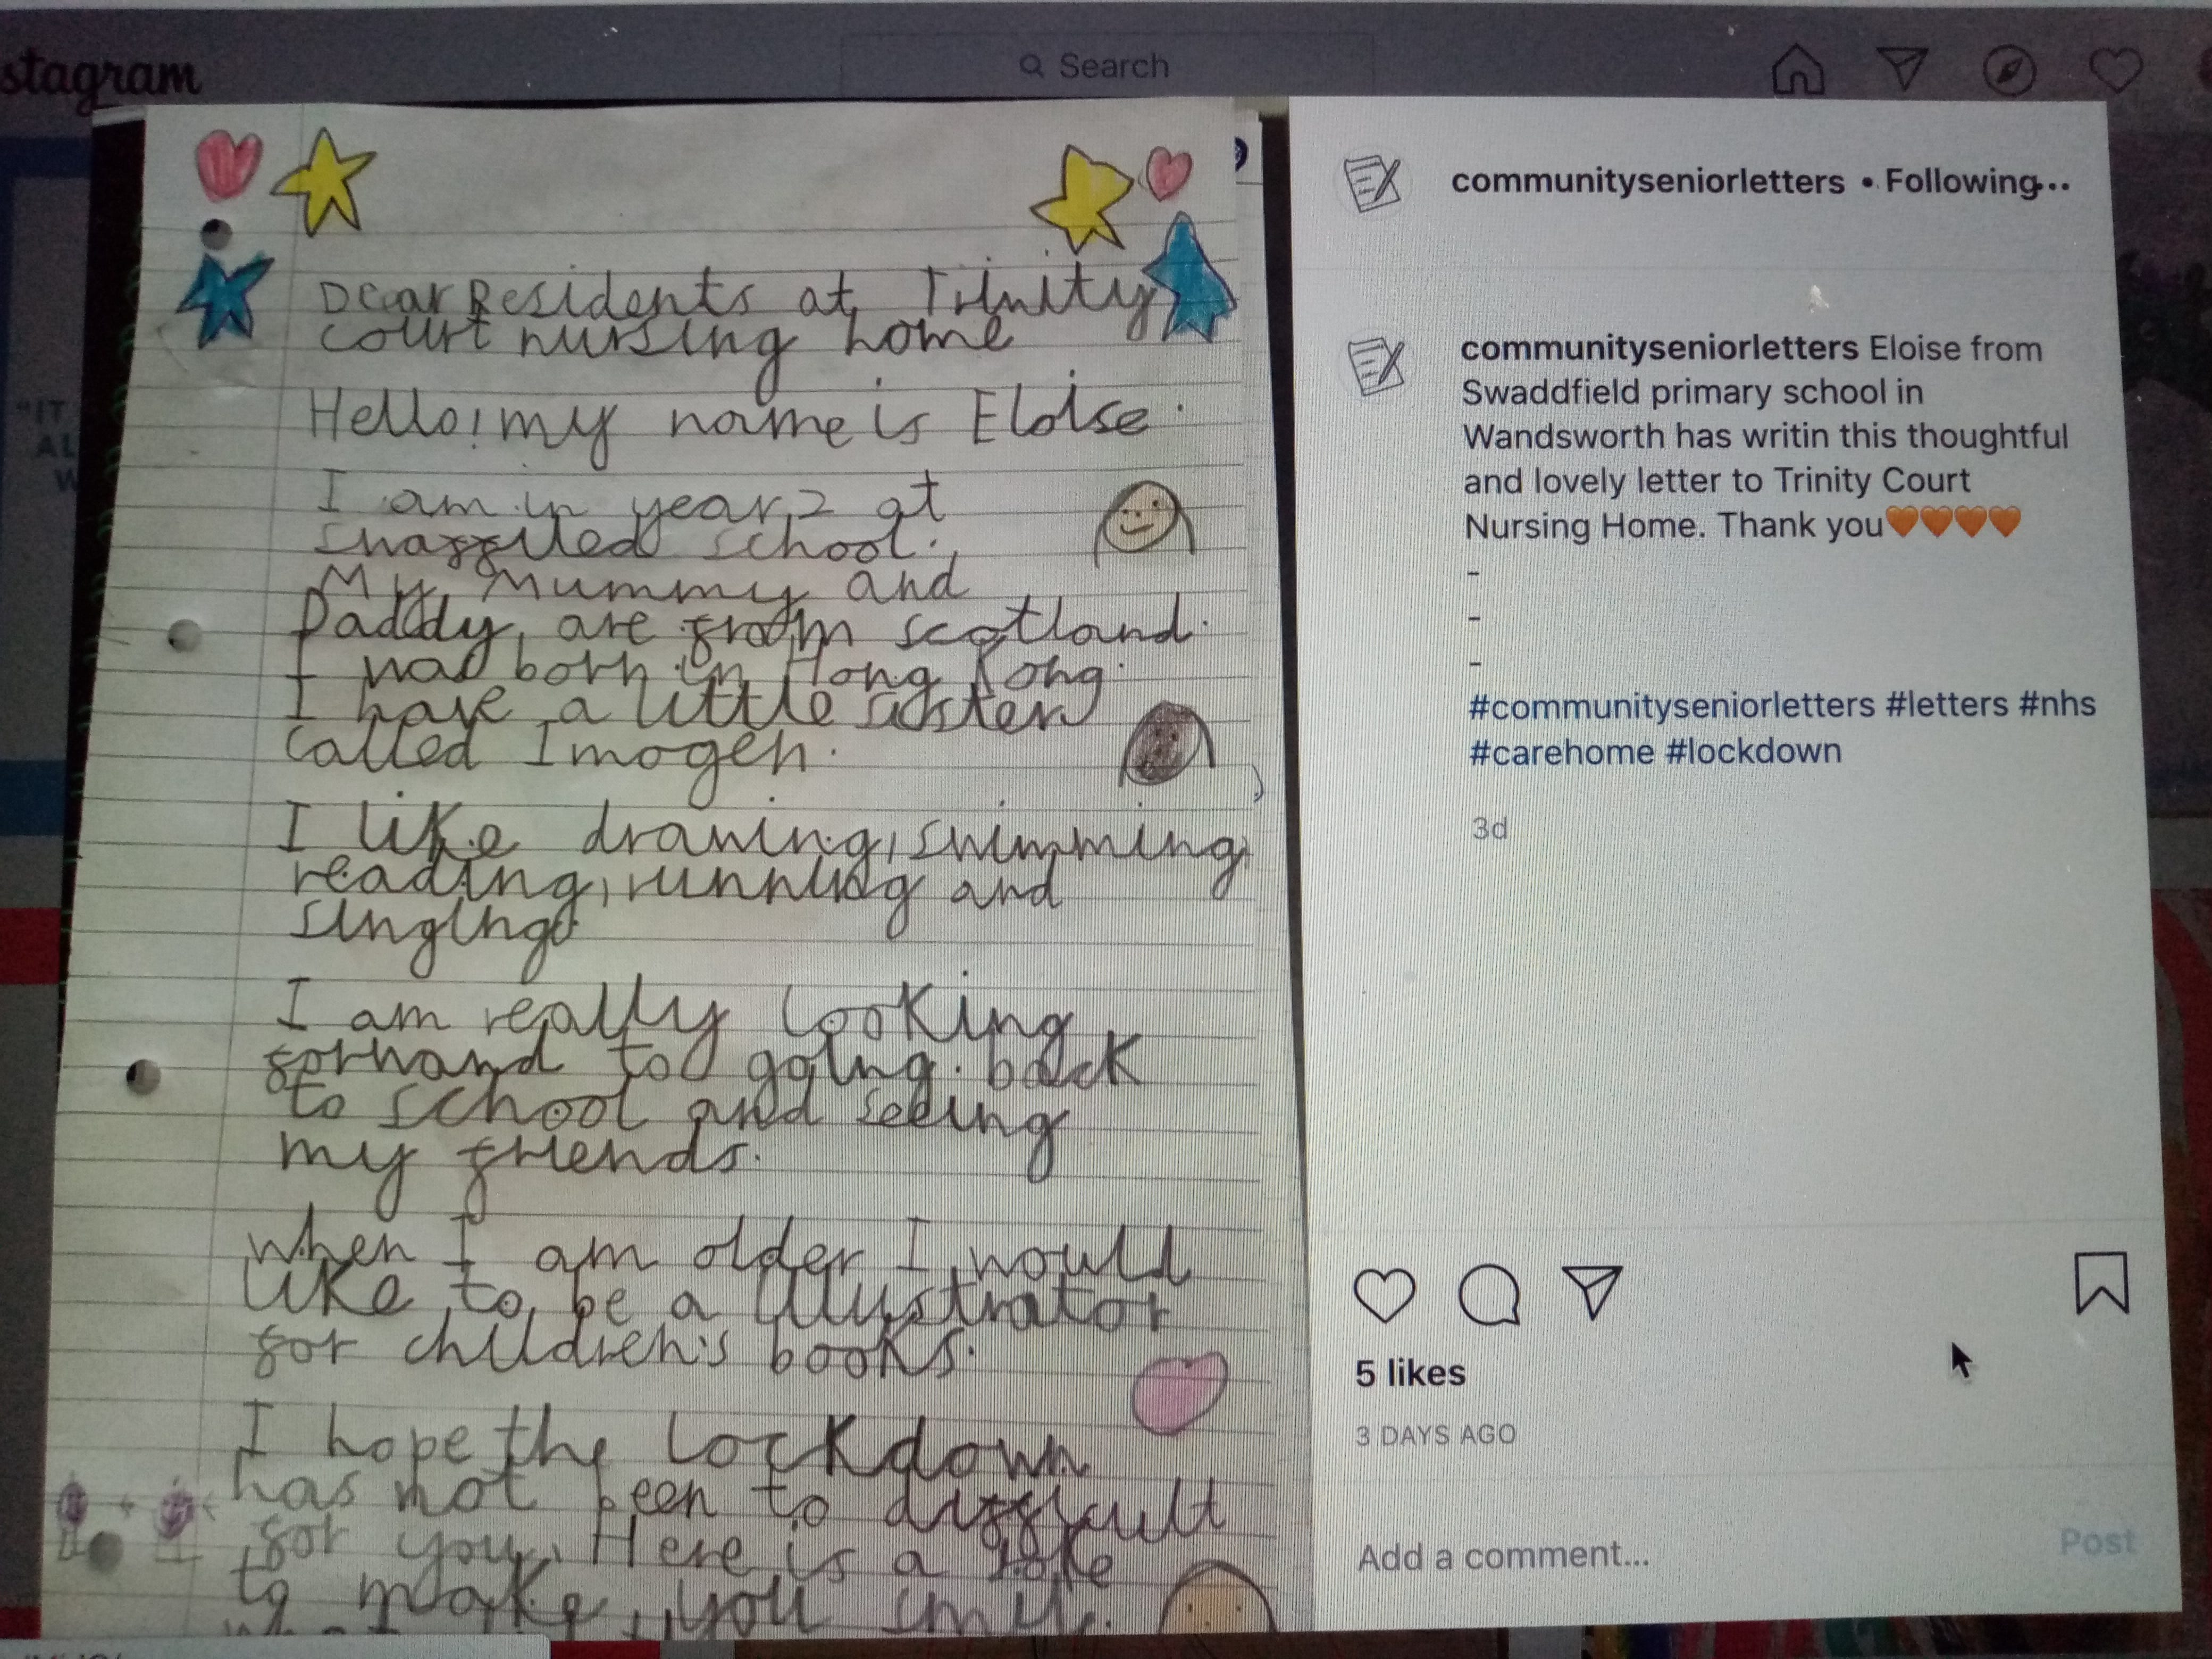 stagram
Search
Dear Residents at Trinity
court nursing home
Hello! my name is Eloise.
I am in year 2 at
school.
My Mummy and
Daddy are from scotland.
I was born in Hong Kong.
I have a little sister
called Imogen.
I like drawing, swimming,
reading, running and
singing
I am really looking
forward to going back
to school and seeing
my friends.
when I am older I would
like to be a illustrator
for children's books.
I hope the lockdown
has not been to difficult
for you. Here is a joke
to make you
communityseniorletters • Following...
communityseniorletters Eloise from
Swaddfield primary school in
Wandsworth has writin this thoughtful
and lovely letter to Trinity Court
Nursing Home. Thank you🧡🧡🧡🧡
-
-
-
#communityseniorletters #letters #nhs
#carehome #lockdown
3d
5 likes
3 DAYS AGO
Add a comment...
Post
"IT
AL
W